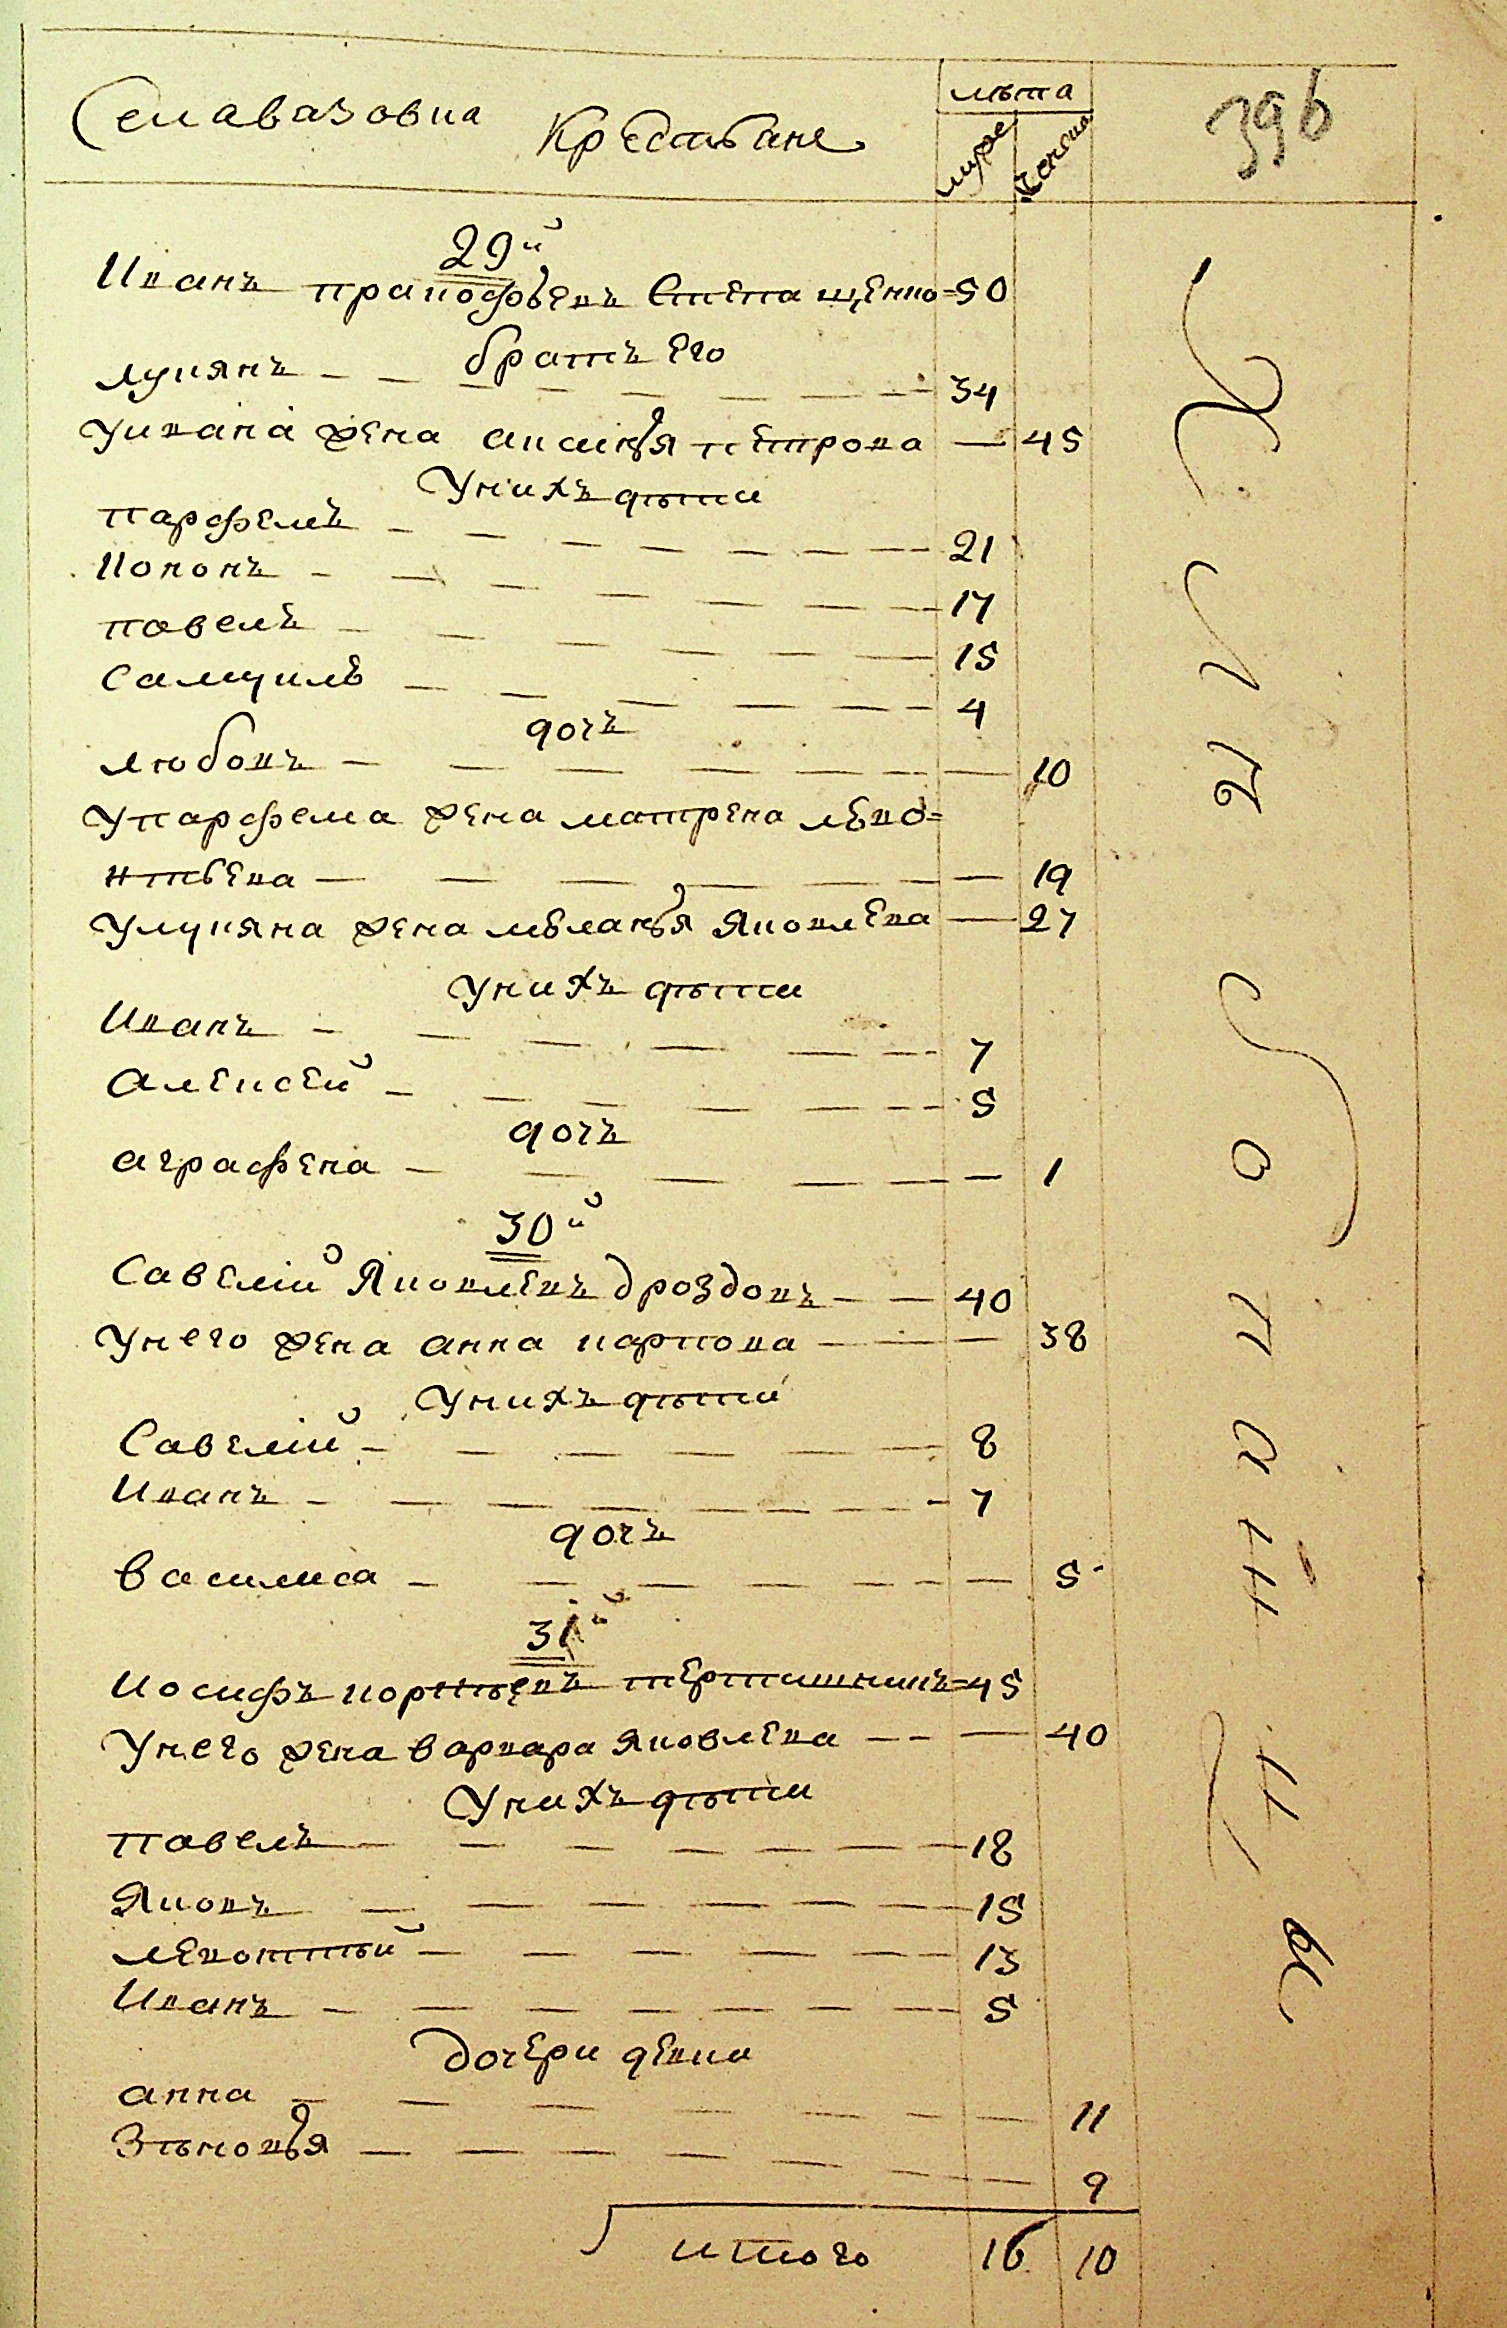 Села вазовка Крестьяне
лѣта
муже
женска
396
29й
Иванъ пракофьевъ Степащенко = 50
братъ Его
лукянъ - - - - - - - 34
Уивана жена аксинья пЕтрова — 45
Унихъ дѣти
парфемъ - - - - - - - 21
Кононъ - - - - - - - 17
павелъ - - - - - - - 15
Самуилъ - - - - - - 4
дочъ
любовъ - - - - - - - 10
Упарфема жена матрена лѣво=
нтьева - - - - - - - 19
Улукяна жена мѣланья Яковлева — 27
Унихъ дѣти
Иванъ - - - - - - - 7
Алексей - - - - - - - 5
дочъ
аграфена - - - - - - - 1
30й
Савелій Яковлевъ дроздовъ - - 40
Унего жена анна карпова - - - 38
Унихъ дѣти
Савелій - - - - - - 8
Иванъ - - - - - - - 7
дочъ
василиса - - - - - - - 5
31й
Иосифъ корнѣевъ тЕртишникъ = 45
Унего жена варвара Яковлева - - — 40
Унихъ дѣти
павелъ - - - - - - - 18
Яковъ - - - - - - - 15
лЕвонтѣй - - - - - - 13
Иванъ - - - - - - - 5
дочери девки
анна - - - - - - - 11
Зѣновья - - - - - - - 9
итого 16 10